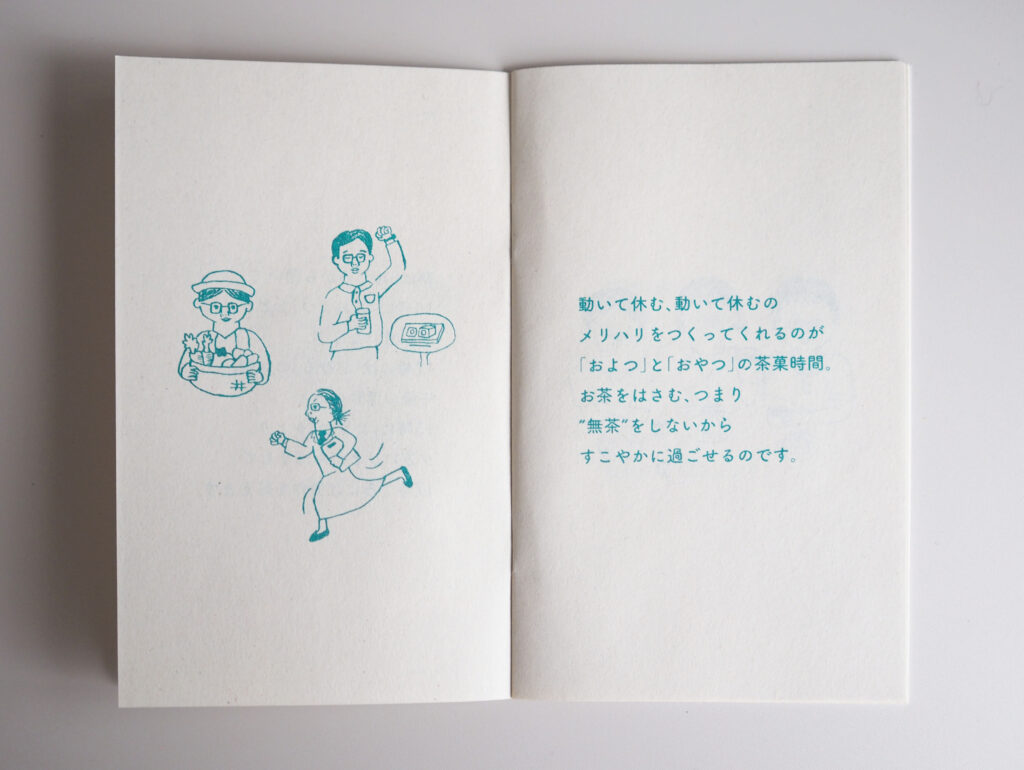 動いて休む、動いて休むの
メリハリをつくってくれるのが
「およつ」と「おやつ」の茶菓時間。
お茶をはさむ、つまり
”無茶”をしないから
すこやかに過ごせるのです。